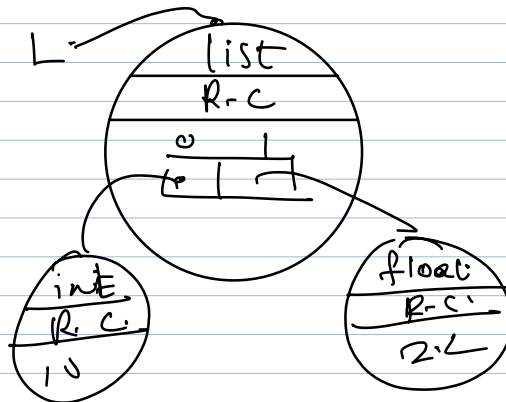 L
list
R-C
0 1
int
R.C.
10
float
R-C.